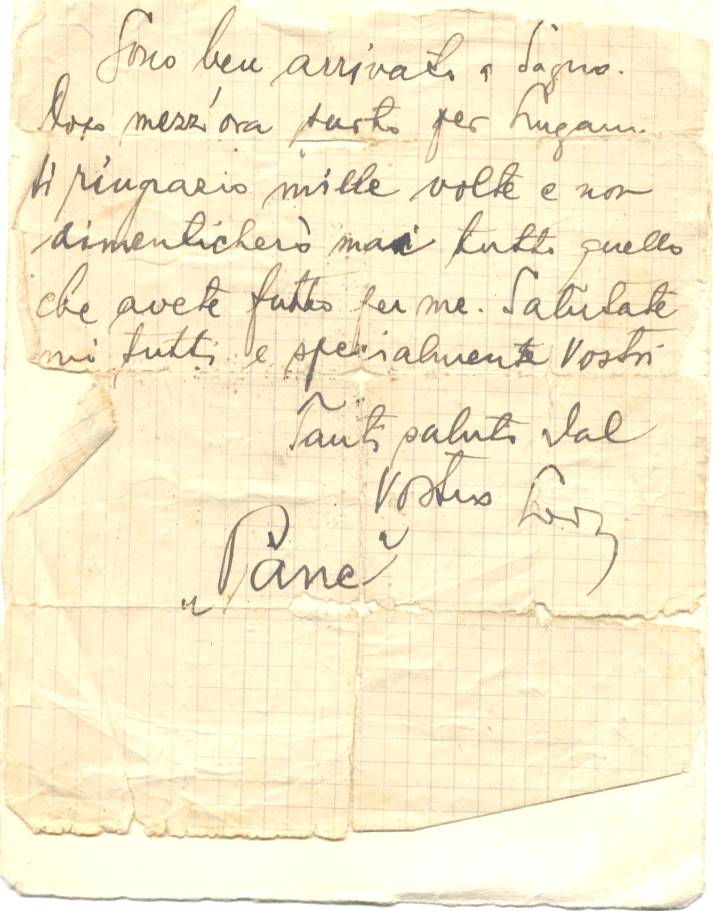 Sono ben arrivato a Sagno.
Dopo mezz'ora parto per Lugano.
ti ringrazio mille volte e non
dimenticherò mai tutto quello
che avete fatto per me. Salutate
mi tutti e specialmente Vostri
Tanti saluti dal
Vostro
„Pane"